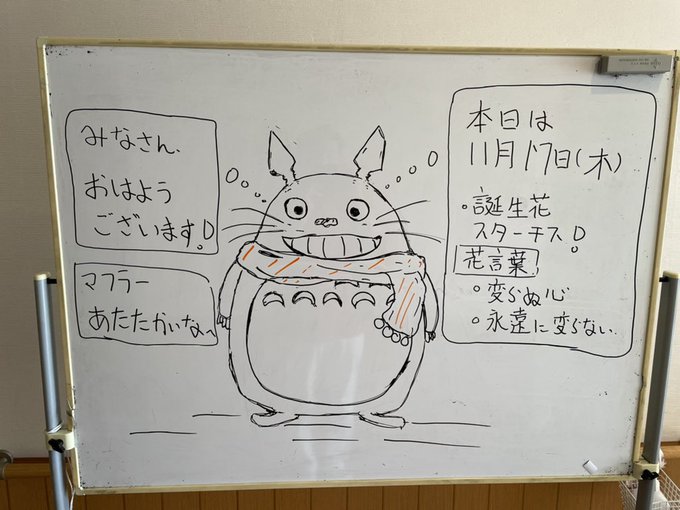 みなさん、
おはよう
ございます!
マフラー
あたたかいな〜
本日は
11月17日(木)
。誕生花
スターチス!
花言葉
○変らぬ心
○永遠に変らない.